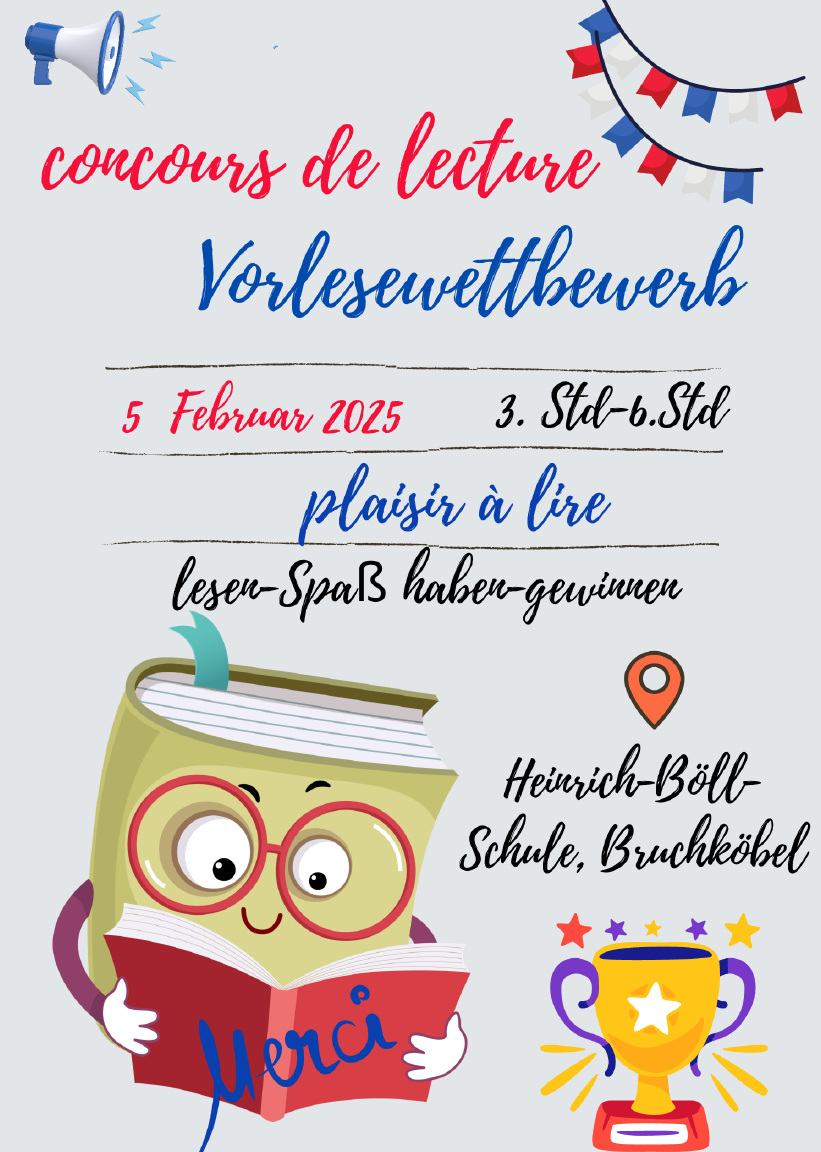 concours de lecture
Vorlesewettbewerb
5 Februar 2025 3. Std-6.Std
plaisir à lire
lesen-Spaß haben-gewinnen
Heinrich-Böll-
Schule, Bruchköbel
Merci